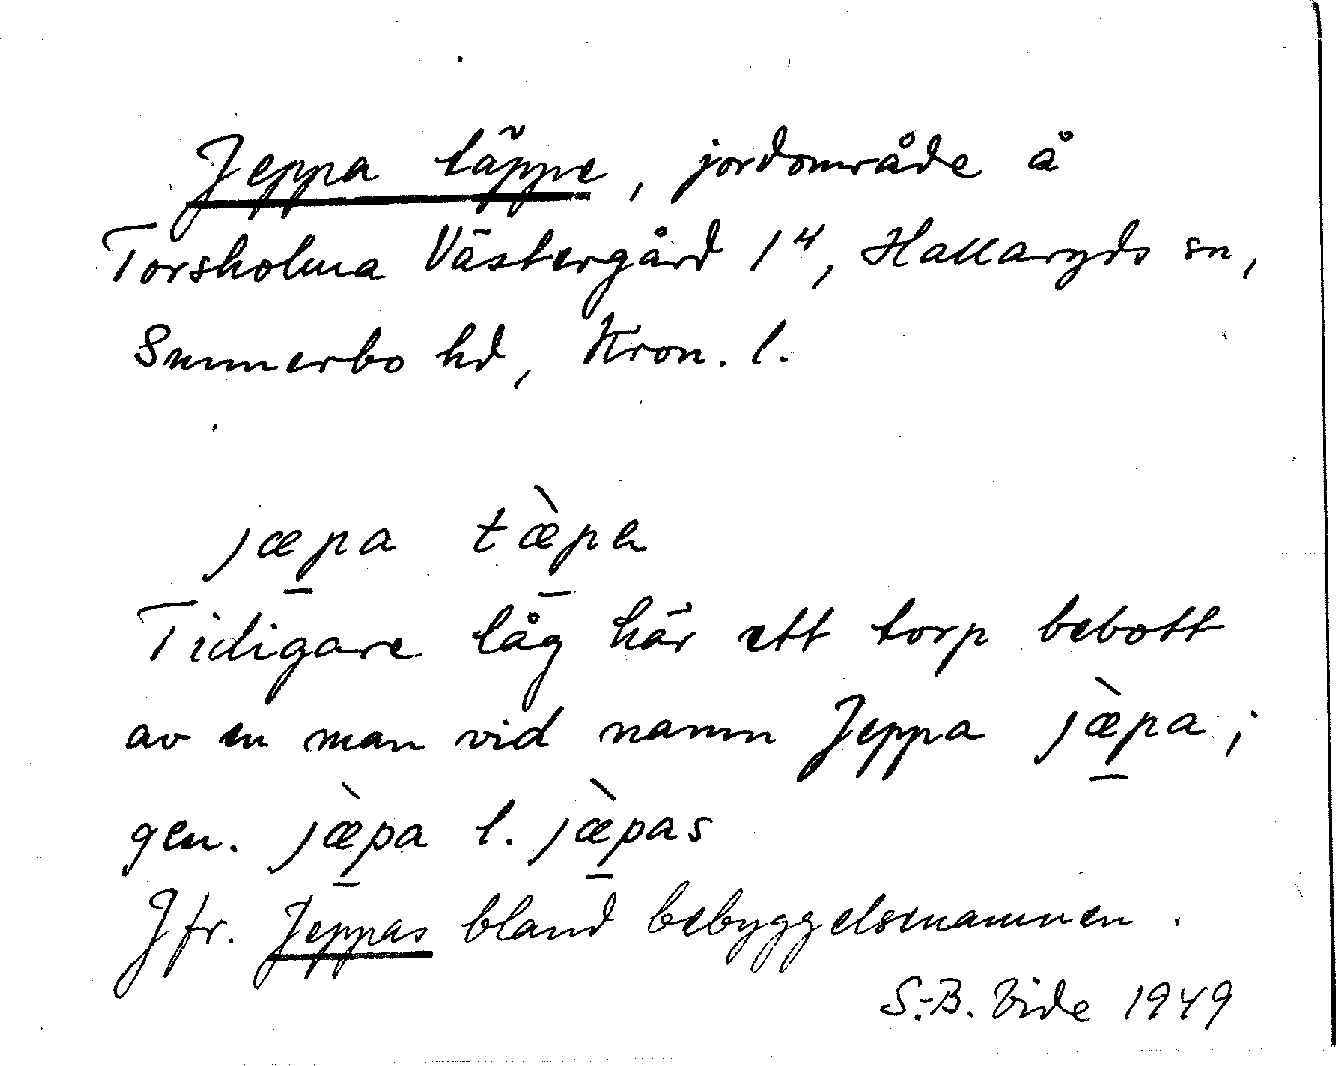 Jeppa täppe, jordområde å
Torsholma Västergård 1⁴, Hallaryds sn,
Sunnerbo hd, Kron. l.
jæ̱pa tæ̱̀pe
Tidigare låg här ett torp bebott
av en man vid namn Jeppa jæ̱̀pa;
gen. jæ̱̀pa l. jæ̱̀pas
Jfr. Jeppas bland bebyggelsenamnen.
S.-B. Vide 1949